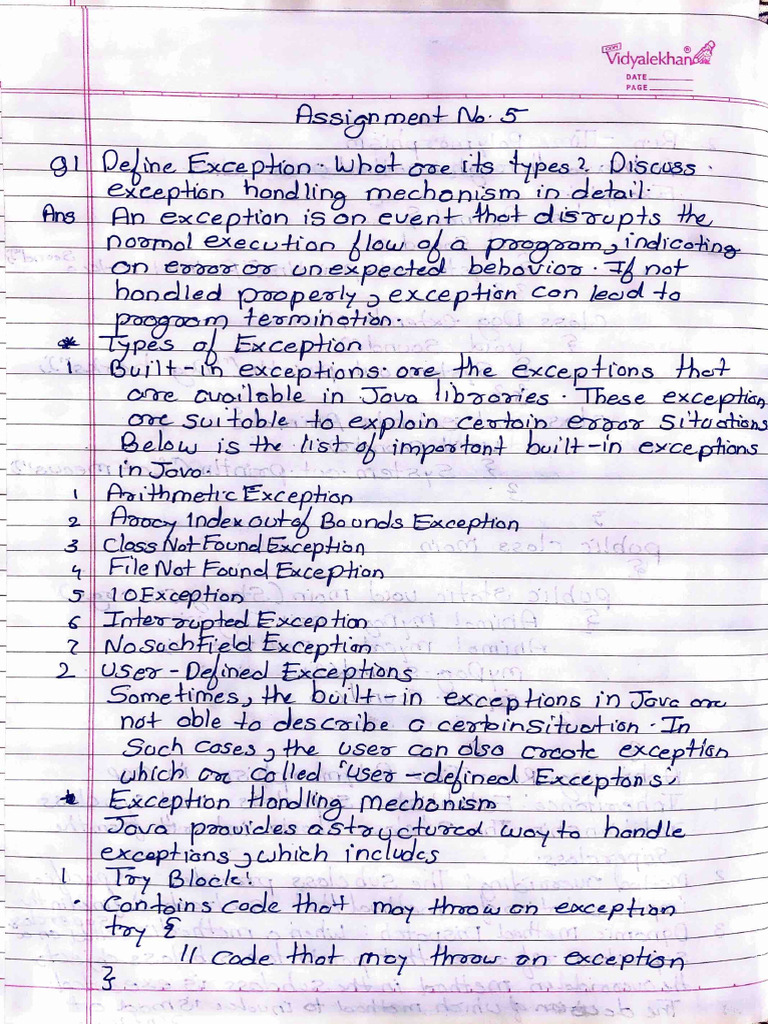 Vidyalekhan
DATE
PAGE
Assignment No. 5
Q1 Define Exception. What are its types? Discuss
exception handling mechanism in detail.
Ans An exception is an event that disrupts the
normal execution flow of a program, indicating
an error or unexpected behavior. If not
handled properly, exception can lead to
program termination.
* Types of Exception
1 Built-in exceptions are the exceptions that
are available in Java libraries. These exception
are suitable to explain certain error situations
Below is the list of important built-in exceptions
in Java.
1 Arithmetic Exception
2 Array Index out of Bounds Exception
3 Class Not Found Exception
4 File Not Found Exception
5 IO Exception
6 Interrupted Exception
7 No Such Field Exception
2 User-Defined Exceptions
Sometimes, the built-in exceptions in Java are
not able to describe a certain situation. In
Such cases, the user can also create exception
which are called "user-defined Exceptons".
* Exception Handling Mechanism
Java provides a structured way to handle
exceptions, which includes
1 Try Block:
• Contains code that may throw an exception
try {
// code that may throw an exception
}